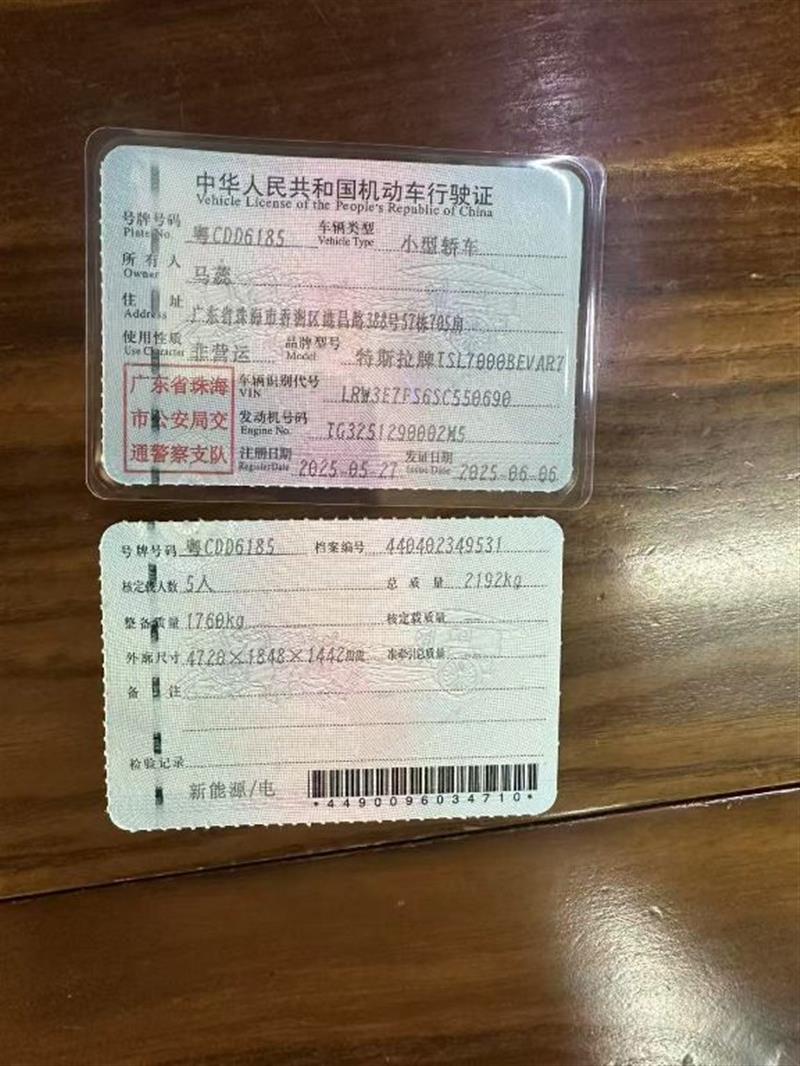 中华人民共和国机动车行驶证
Vehicle License of the People's Republic of China
号牌号码 粤CDD6185 车辆类型 小型轿车
Plate No. Vehicle Type
所有人 马蕊
Owner
住址 广东省珠海市香洲区 388号57栋705房
Address
使用性质 非营运 品牌型号 特斯拉牌TSL7000BEVAR7
Use Character Model
广东省珠海 车辆识别代号 LRW3E7FS6SC550690
VIN
市公安局交 发动机号码 TG3251290002M5
Engine No.
通警察支队 注册日期 2025-05-27 发证日期 2025-06-06
Register Date Issue Date
号牌号码 粤CDD6185 档案编号 440402349531
核定载人数 5人 总质量 2192kg
整备质量 1760kg 核定载质量 --
外廓尺寸 4720×1848×1442mm 准牵引总质量 --
备注
检验记录
新能源/电
*4490096034710*